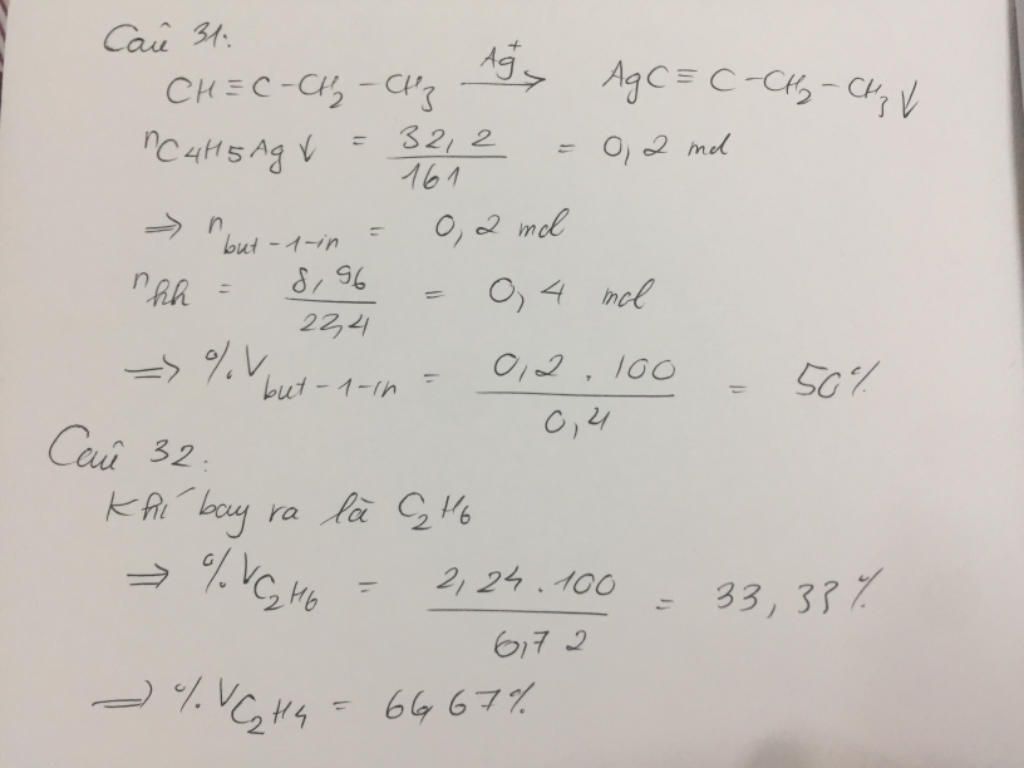 Câu 31:
CH≡C-CH₂-CH₃ —Ag⁺→ AgC≡C-CH₂-CH₃↓
nC4H5Ag↓ = 32,2/161 = 0,2 mol
⇒ n but-1-in = 0,2 mol
nhh = 8,96/22,4 = 0,4 mol
⇒ %V but-1-in = 0,2.100/0,4 = 50%
Câu 32:
Khí bay ra là C₂H₆
⇒ %V C₂H₆ = 2,24.100/6,72 = 33,33%
⇒ %V C₂H₄ = 66,67%